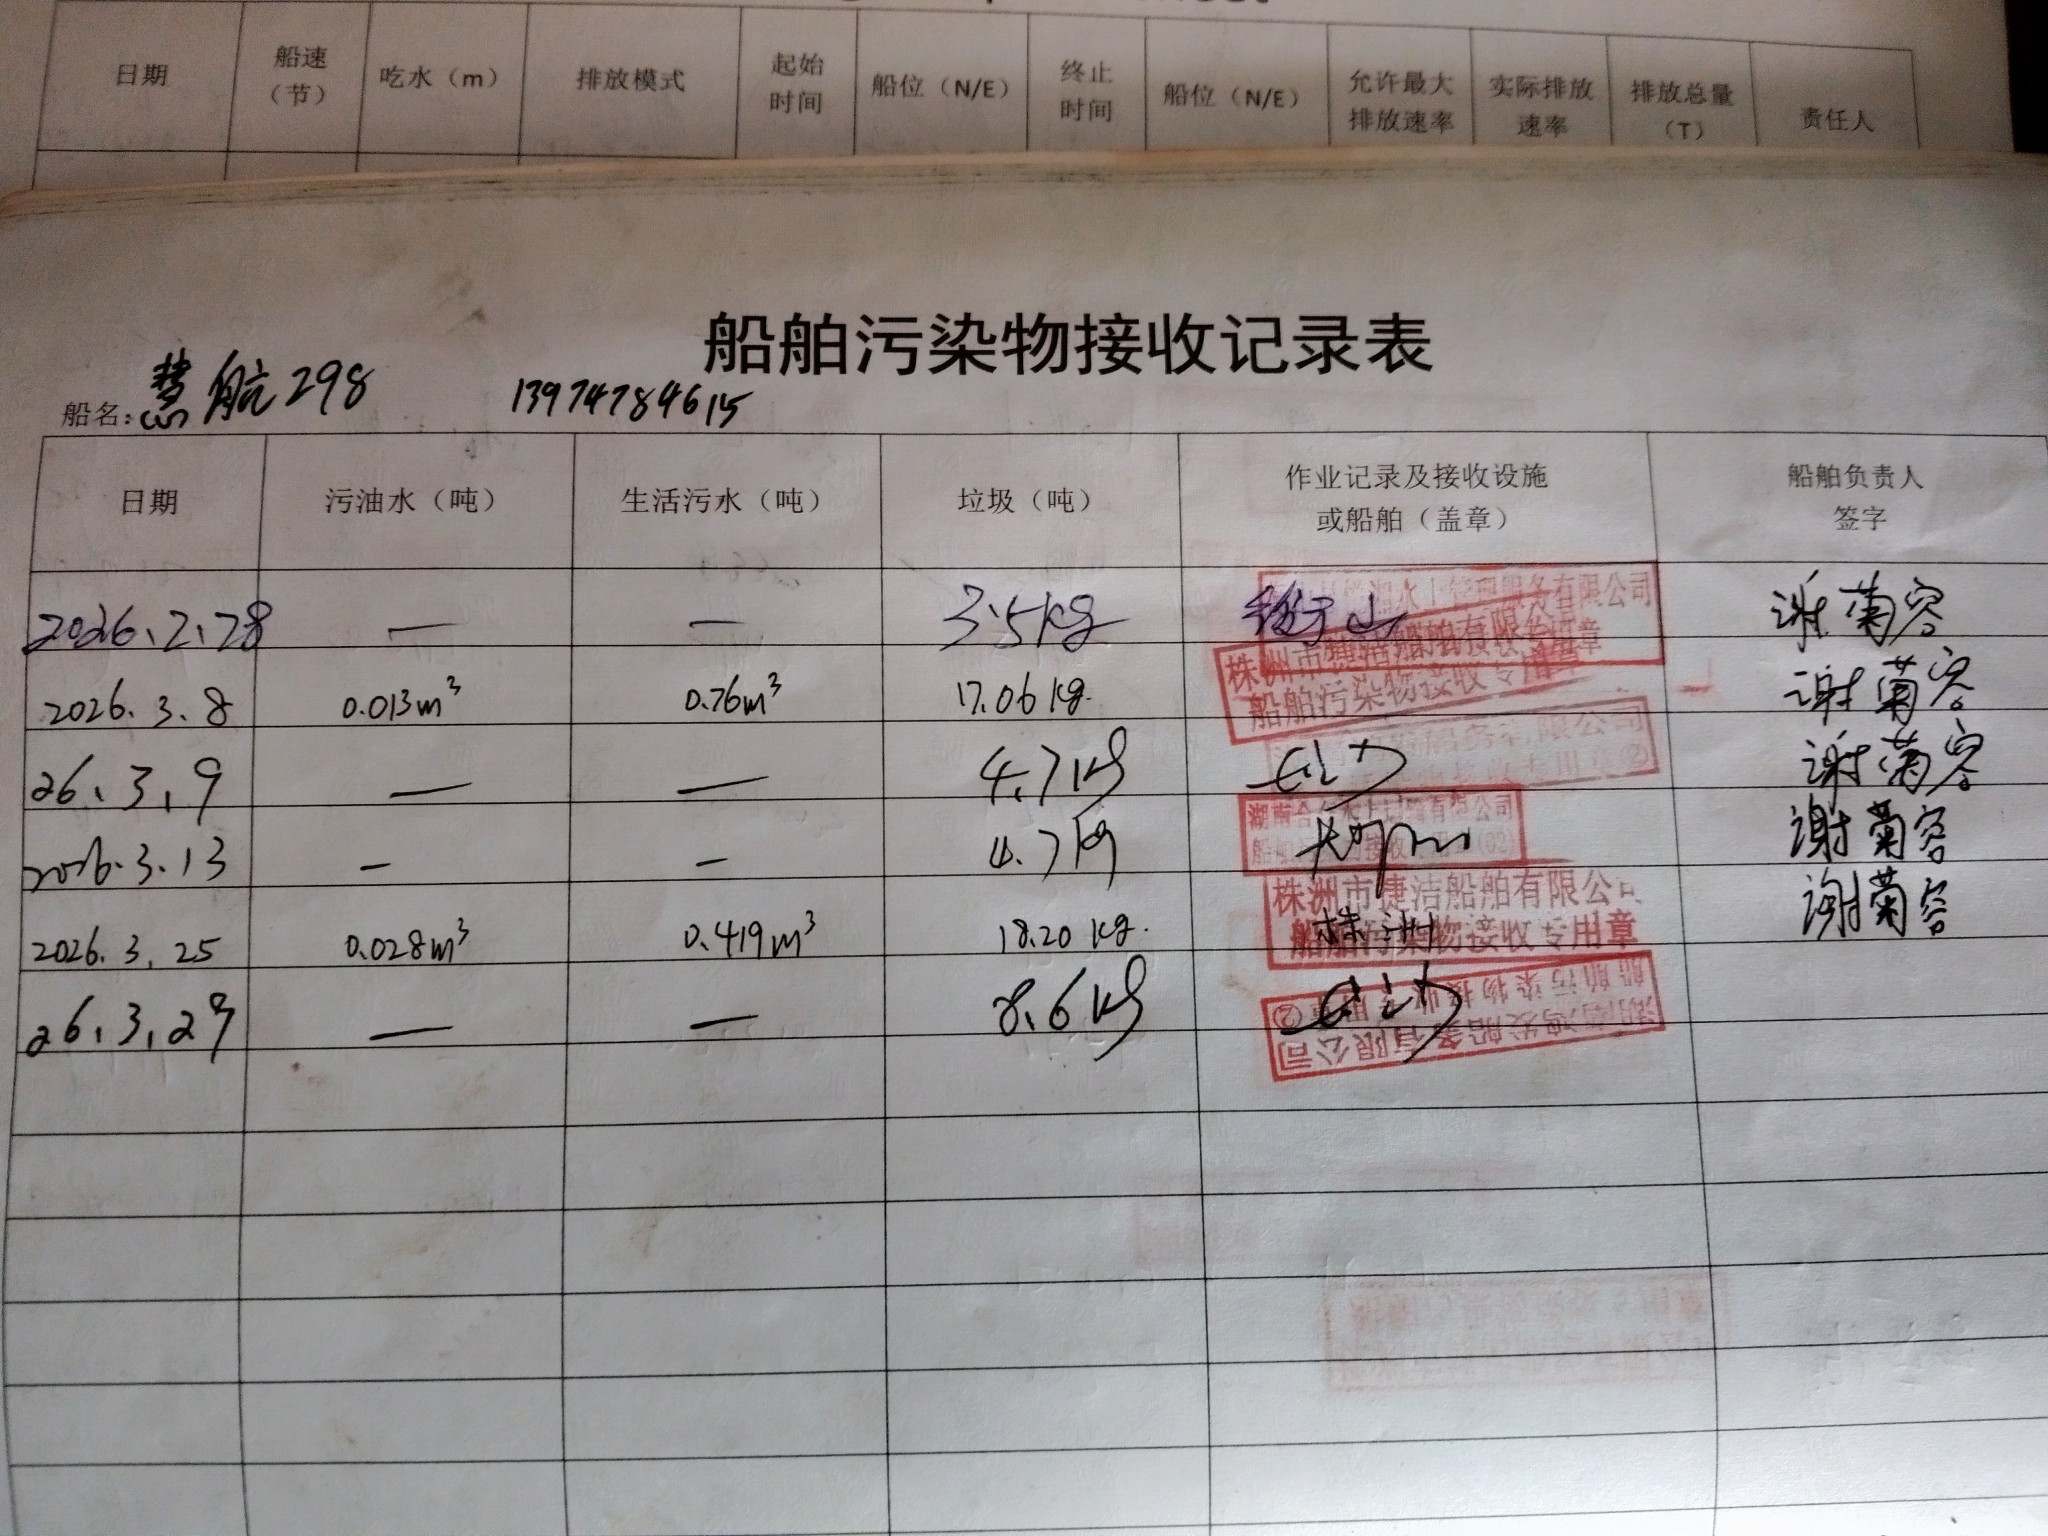 日期 船速（节） 吃水（m） 排放模式 起始时间 船位（N/E） 终止时间 船位（N/E） 允许最大排放速率 实际排放速率 排放总量（T） 责任人
船舶污染物接收记录表
船名：慧航298 13974784615
日期 污油水（吨） 生活污水（吨） 垃圾（吨） 作业记录及接收设施或船舶（盖章） 船舶负责人签字
2026.2.28 — — 3.5kg 谢菊容
2026.3.8 0.013m³ 0.76m³ 17.06kg. 株洲市捷洁船舶有限公司 船舶污染物接收专用章 谢菊容
26.3.9 — — 4.7kg 谢菊容
2026.3.13 — — 4.7kg 谢菊容
2026.3.25 0.028m³ 0.419m³ 18.20kg. 株洲市捷洁船舶有限公司 船舶污染物接收专用章 株洲 谢菊容
26.3.29 — — 8.6kg 湖南鸿发船务有限公司 船舶污染物接收专用章②